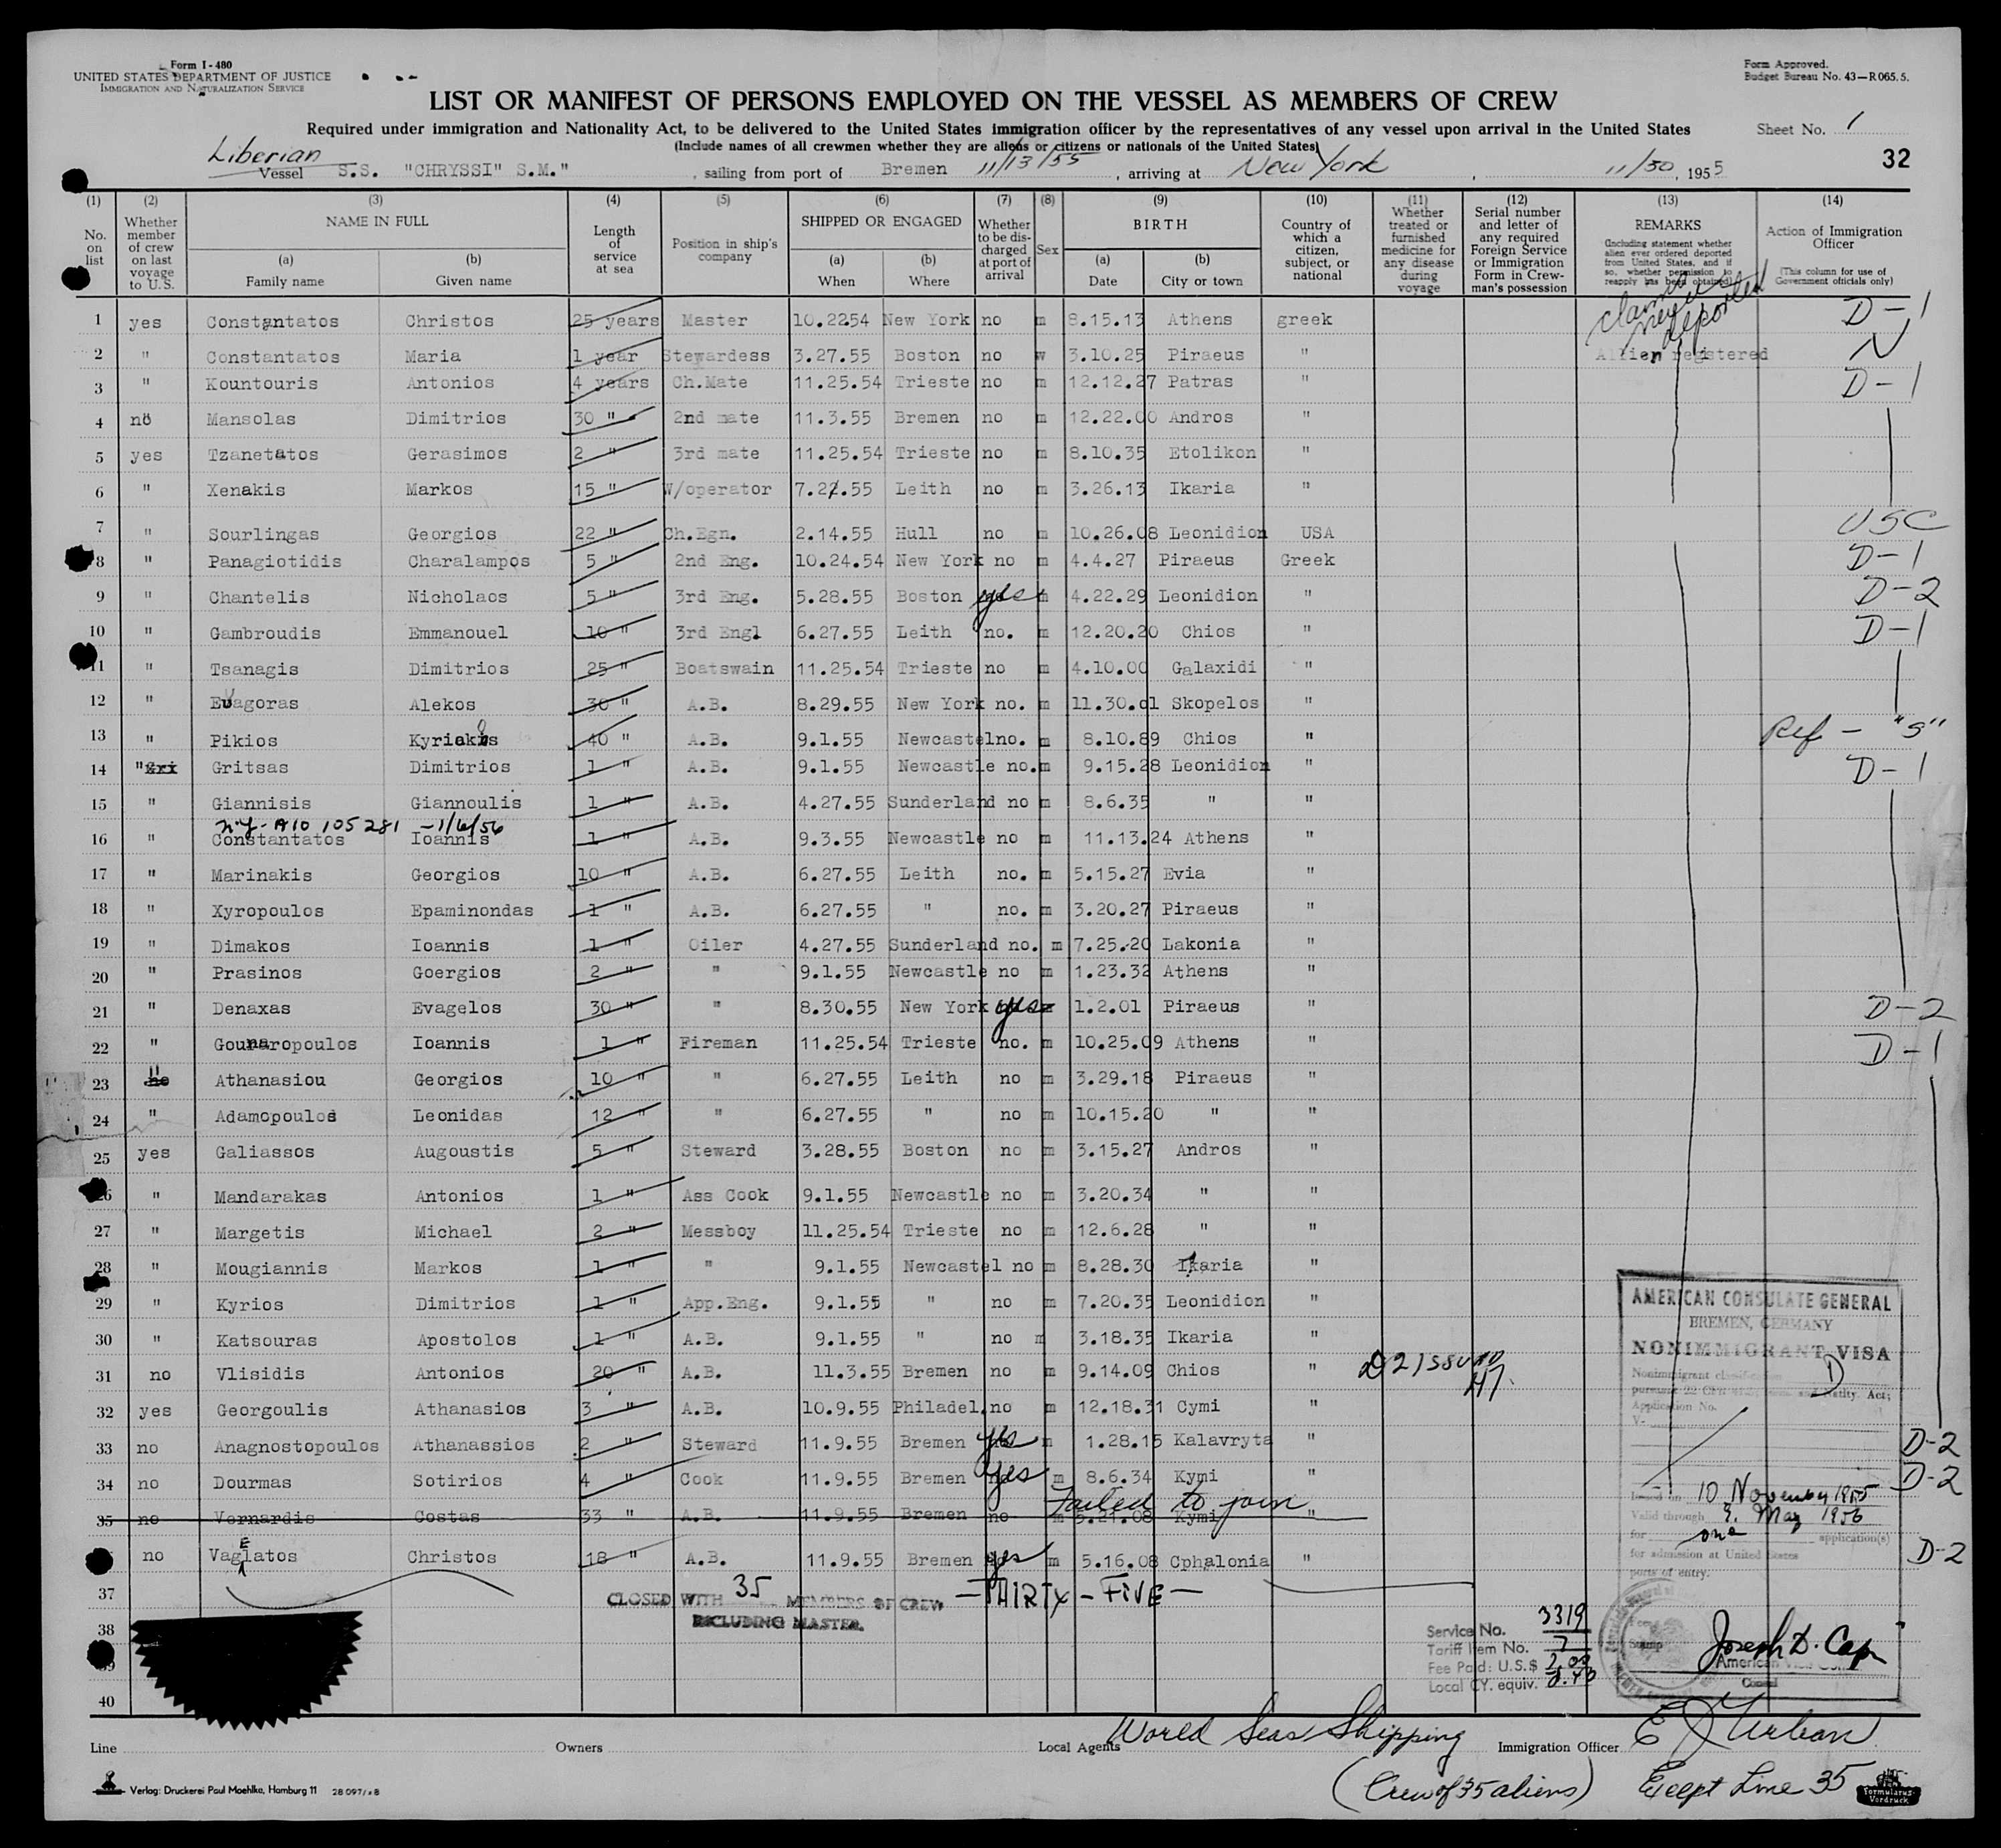 Form I-480
UNITED STATES DEPARTMENT OF JUSTICE
IMMIGRATION AND NATURALIZATION SERVICE
Form Approved.
Budget Bureau No. 43—R065.5.
LIST OR MANIFEST OF PERSONS EMPLOYED ON THE VESSEL AS MEMBERS OF CREW
Required under immigration and Nationality Act, to be delivered to the United States immigration officer by the representatives of any vessel upon arrival in the United States
Sheet No. 1
(Include names of all crewmen whether they are aliens or citizens or nationals of the United States)
32
Liberian
Vessel S.S. "CHRYSSI" S.M.", sailing from port of Bremen 11/13/55, arriving at New York, 11/30, 1955
(1) No. on list
(2) Whether member of crew on last voyage to U.S.
(3) NAME IN FULL (a) Family name (b) Given name
(4) Length of service at sea
(5) Position in ship's company
(6) SHIPPED OR ENGAGED (a) When (b) Where
(7) Whether to be discharged at port of arrival
(8) Sex
(9) BIRTH (a) Date (b) City or town
(10) Country of which a citizen, subject, or national
(11) Whether treated or furnished medicine for any disease during voyage
(12) Serial number and letter of any required Foreign Service or Immigration Form in Crewman's possession
(13) REMARKS (Including statement whether alien ever ordered deported from United States, and if so, whether permission to reapply has been obtained)
(14) Action of Immigration Officer (This column for use of Government officials only)
claimed never deported
1 yes Constantatos Christos 25 years Master 10.2254 New York no m 8.15.13 Athens greek D-1
2 " Constantatos Maria 1 year Stewardess 3.27.55 Boston no w 3.10.25 Piraeus " Allien registered
3 " Kountouris Antonios 4 years Ch.Mate 11.25.54 Trieste no m 12.12.27 Patras " D-1
4 no Mansolas Dimitrios 30 " 2nd mate 11.3.55 Bremen no m 12.22.00 Andros "
5 yes Tzanetatos Gerasimos 2 " 3rd mate 11.25.54 Trieste no m 8.10.35 Etolikon "
6 " Xenakis Markos 15 " W/operator 7.22.55 Leith no m 3.26.13 Ikaria "
7 " Sourlingas Georgios 22 " Ch.Egn. 2.14.55 Hull no m 10.26.08 Leonidion USA USC
8 " Panagiotidis Charalampos 5 " 2nd Eng. 10.24.54 New York no m 4.4.27 Piraeus Greek D-1
9 " Chantelis Nicholaos 5 " 3rd Eng. 5.28.55 Boston yes m 4.22.29 Leonidion " D-2
10 " Gambroudis Emmanouel 10 " 3rd Engl 6.27.55 Leith no. m 12.20.20 Chios " D-1
11 " Tsanagis Dimitrios 25 " Boatswain 11.25.54 Trieste no m 4.10.00 Galaxidi "
12 " Evagoras Alekos 30 " A.B. 8.29.55 New York no. m 11.30.01 Skopelos "
13 " Pikios Kyriakos 40 " A.B. 9.1.55 Newcastelno. m 8.10.89 Chios " Ref - "S"
14 " Gri Gritsas Dimitrios 1 " A.B. 9.1.55 Newcastle no.m 9.15.28 Leonidion " D-1
15 " Giannisis Giannoulis 1 " A.B. 4.27.55 Sunderland no m 8.6.35 " "
N.Y.-A10 105281 -1/6/56
16 " Constantatos Ioannis 1 " A.B. 9.3.55 Newcastle no m 11.13.24 Athens "
17 " Marinakis Georgios 10 " A.B. 6.27.55 Leith no. m 5.15.27 Evia "
18 " Xyropoulos Epaminondas 1 " A.B. 6.27.55 " no. m 3.20.27 Piraeus "
19 " Dimakos Ioannis 1 " Oiler 4.27.55 Sunderland no. m 7.25.20 Lakonia "
20 " Prasinos Goergios 2 " " 9.1.55 Newcastle no m 1.23.32 Athens "
21 " Denaxas Evagelos 30 " " 8.30.55 New York yes m 1.2.01 Piraeus " D-2
22 " Gounaropoulos Ioannis 1 " Fireman 11.25.54 Trieste no. m 10.25.09 Athens " D-1
23 " no Athanasiou Georgios 10 " " 6.27.55 Leith no m 3.29.18 Piraeus "
24 " Adamopoulos Leonidas 12 " " 6.27.55 " no m 10.15.20 " "
25 yes Galiassos Augoustis 5 " Steward 3.28.55 Boston no m 3.15.27 Andros "
26 " Mandarakas Antonios 1 " Ass Cook 9.1.55 Newcastle no m 3.20.34 " "
27 " Margetis Michael 2 " Messboy 11.25.54 Trieste no m 12.6.28 " "
28 " Mougiannis Markos 1 " " 9.1.55 Newcastel no m 8.28.30 Ikaria "
29 " Kyrios Dimitrios 1 " App.Eng. 9.1.55 " no m 7.20.35 Leonidion "
30 " Katsouras Apostolos 1 " A.B. 9.1.55 " no m 3.18.35 Ikaria "
31 no Vlisidis Antonios 20 " A.B. 11.3.55 Bremen no m 9.14.09 Chios " D2 issued
32 yes Georgoulis Athanasios 3 " A.B. 10.9.55 Philadel.no m 12.18.31 Cymi "
33 no Anagnostopoulos Athanassios 2 " Steward 11.9.55 Bremen yes m 1.28.15 Kalavryta " D-2
34 no Dourmas Sotirios 4 " Cook 11.9.55 Bremen yes m 8.6.34 Kymi " D-2
Failed to join
35 no Vernardis Costas 33 " A.B. 11.9.55 Bremen no m 5.21.08 Kymi "
no VagElatos Christos 18 " A.B. 11.9.55 Bremen yes m 5.16.08 Cphalonia " D-2
37
CLOSED WITH 35 MEMBERS OF CREW —THIRTY-FIVE—
INCLUDING MASTER.
38
39
40
AMERICAN CONSULATE GENERAL
BREMEN, GERMANY
NONIMMIGRANT VISA
Nonimmigrant classification D
Application No.
V-
Issued on 10 November 1955
Valid through 9. May 1956
for one application(s)
for admission at United States
ports of entry.
Service No. 3319
Tariff Item No. 7
Fee Paid: U.S.$ 2.00
Local CY. equiv. 8.40
Fee Stamp
Joseph D. Cap
American Vice Consul
Consul
Line Owners Local Agents World Seas Shipping Immigration Officer E J Urban
(Crew of 35 aliens) Except Line 35
Verlag: Druckerei Paul Moehlke, Hamburg 11 28 097/x8
Formularus-Vordruck